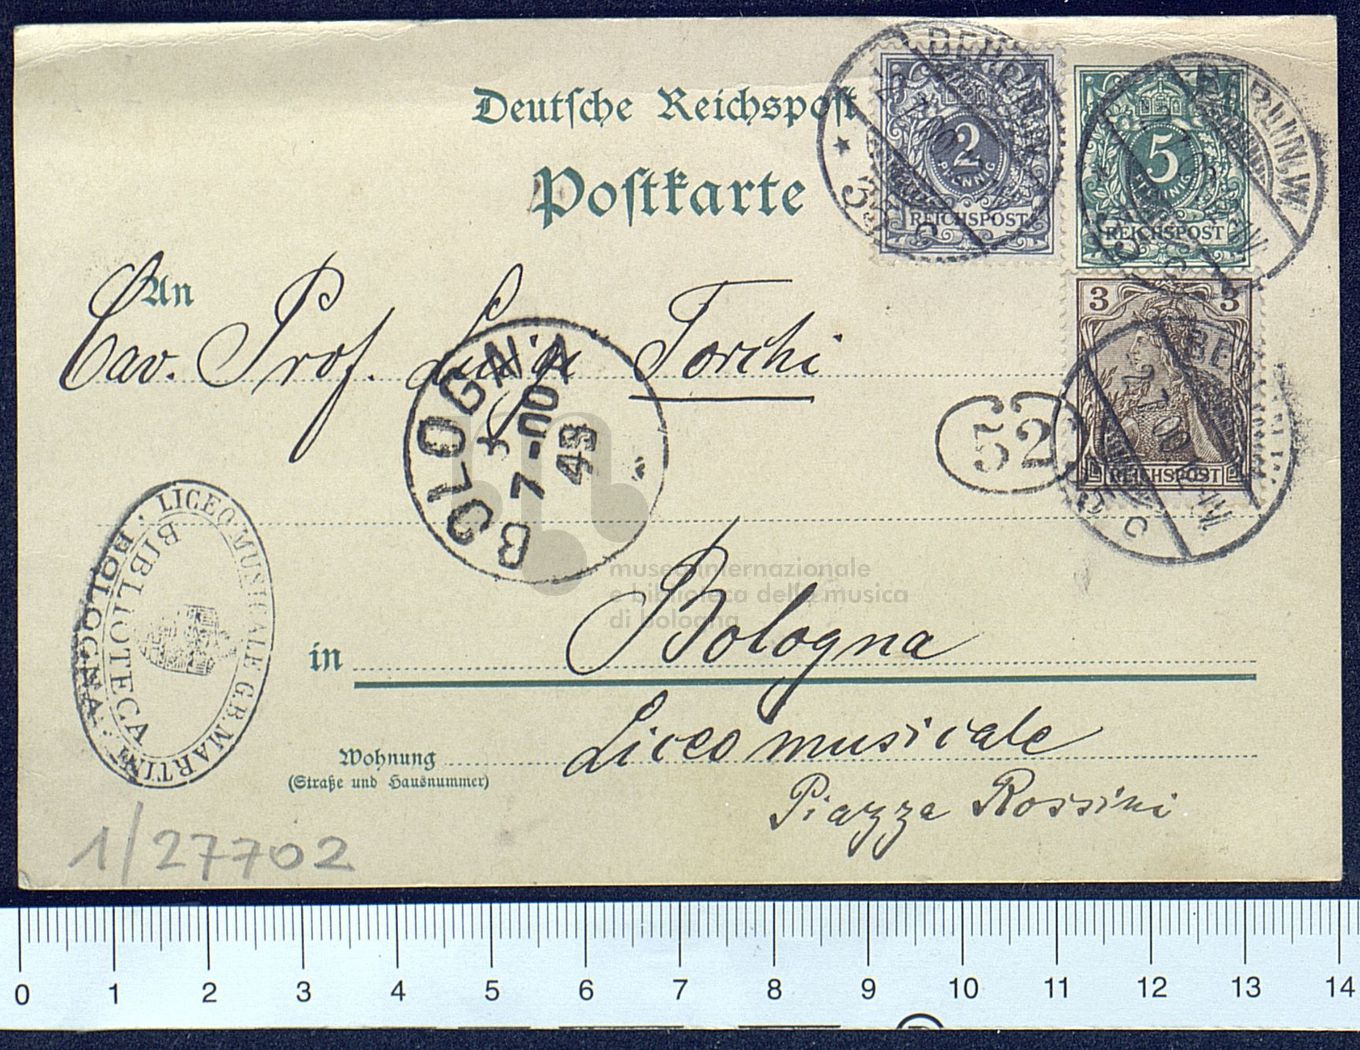 Deutsche Reichspost
Postkarte
2
PFENNIG
REICHSPOST
5
PFENNIG
REICHSPOST
3 3
REICHSPOST
BERLIN, N.W.
BERLIN, N.W.
An
Cav. Prof. Luigi Torchi
BOLOGNA
7-00
49
52
LICEO MUSICALE G.B. MARTINI
BIBLIOTECA
BOLOGNA
museo internazionale
e biblioteca della musica
di bologna
in Bologna
Wohnung
(Straße und Hausnummer)
Liceo musicale
Piazza Rossini
1/27702
0 1 2 3 4 5 6 7 8 9 10 11 12 13 14